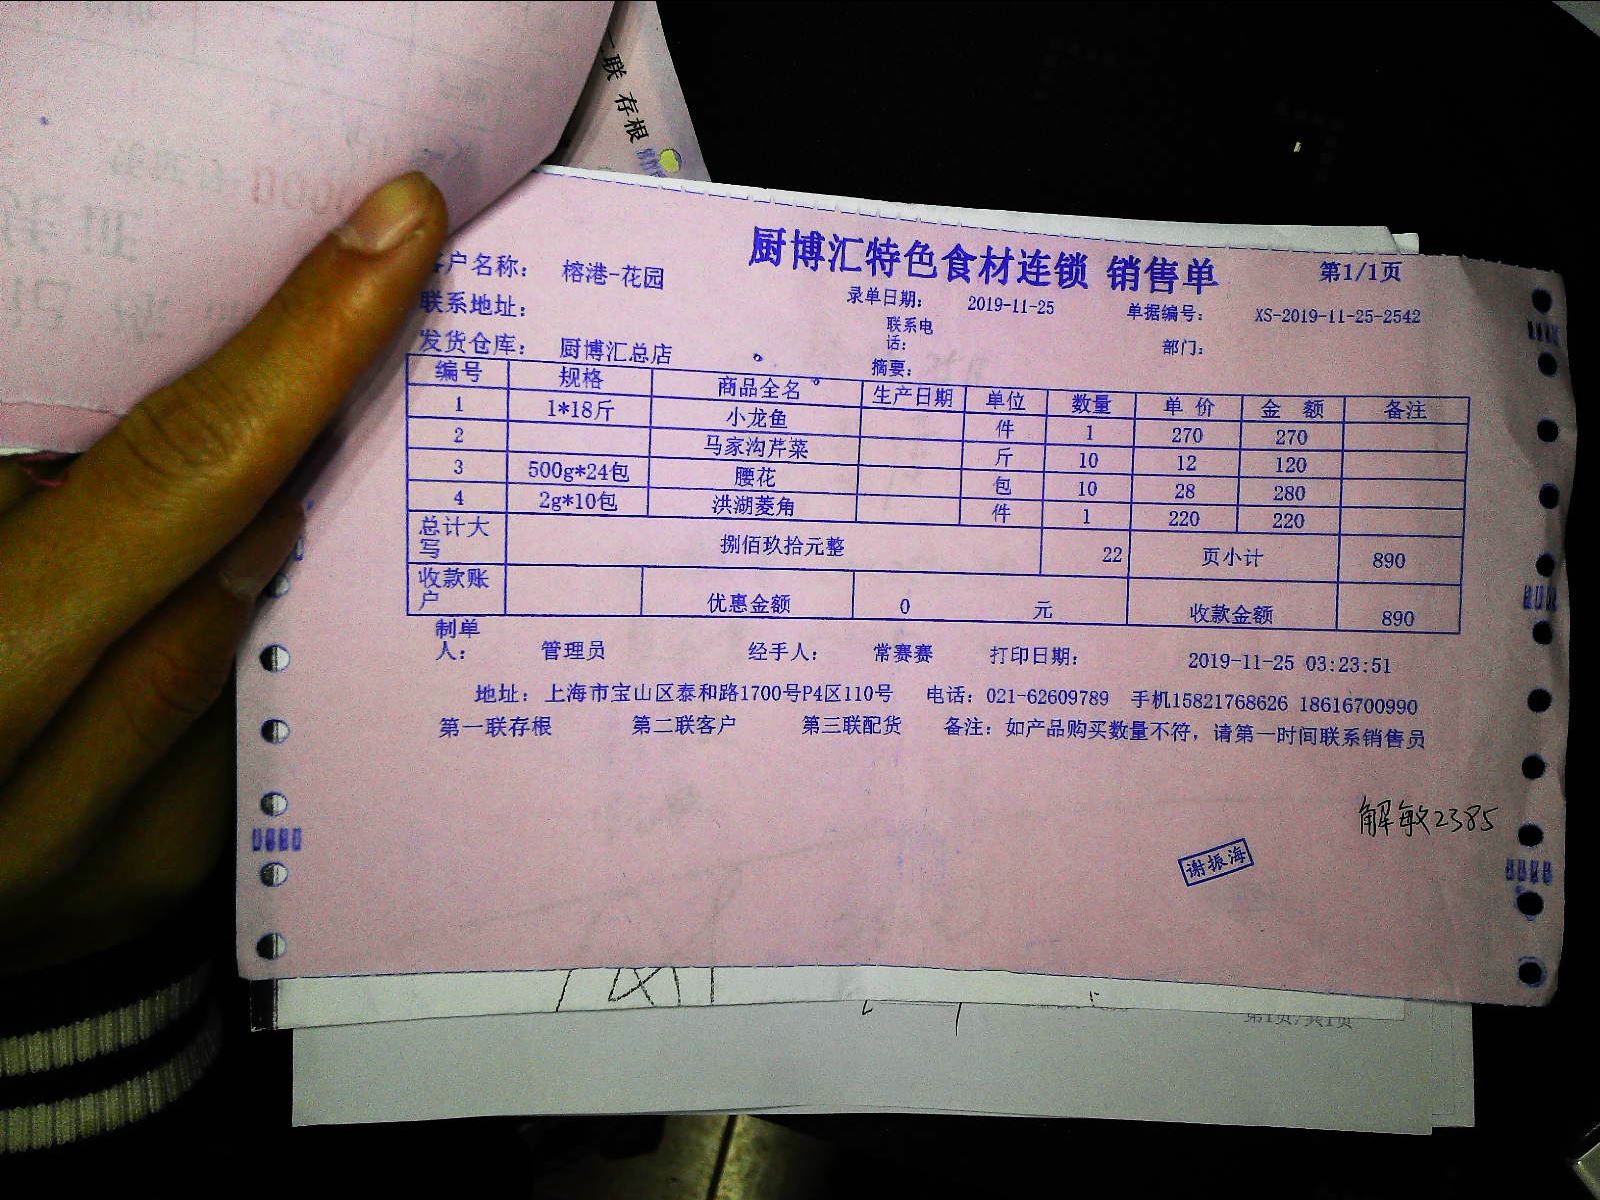 联 存根
厨博汇特色食材连锁 销售单 第1/1页
客户名称： 榕港-花园
录单日期： 2019-11-25 单据编号： XS-2019-11-25-2542
联系地址： 联系电话： 部门：
发货仓库： 厨博汇总店 摘要：
编号 规格 商品全名 生产日期 单位 数量 单 价 金 额 备注
1 1*18斤 小龙鱼 件 1 270 270
2 马家沟芹菜 斤 10 12 120
3 500g*24包 腰花 包 10 28 280
4 2g*10包 洪湖菱角 件 1 220 220
总计大写 捌佰玖拾元整 22 页小计 890
收款账户 优惠金额 0 元 收款金额 890
制单人： 管理员 经手人： 常赛赛 打印日期： 2019-11-25 03:23:51
地址：上海市宝山区泰和路1700号P4区110号 电话：021-62609789 手机15821768626 18616700990
第一联存根 第二联客户 第三联配货 备注：如产品购买数量不符，请第一时间联系销售员
解敏2385
谢振海
第1页/共1页